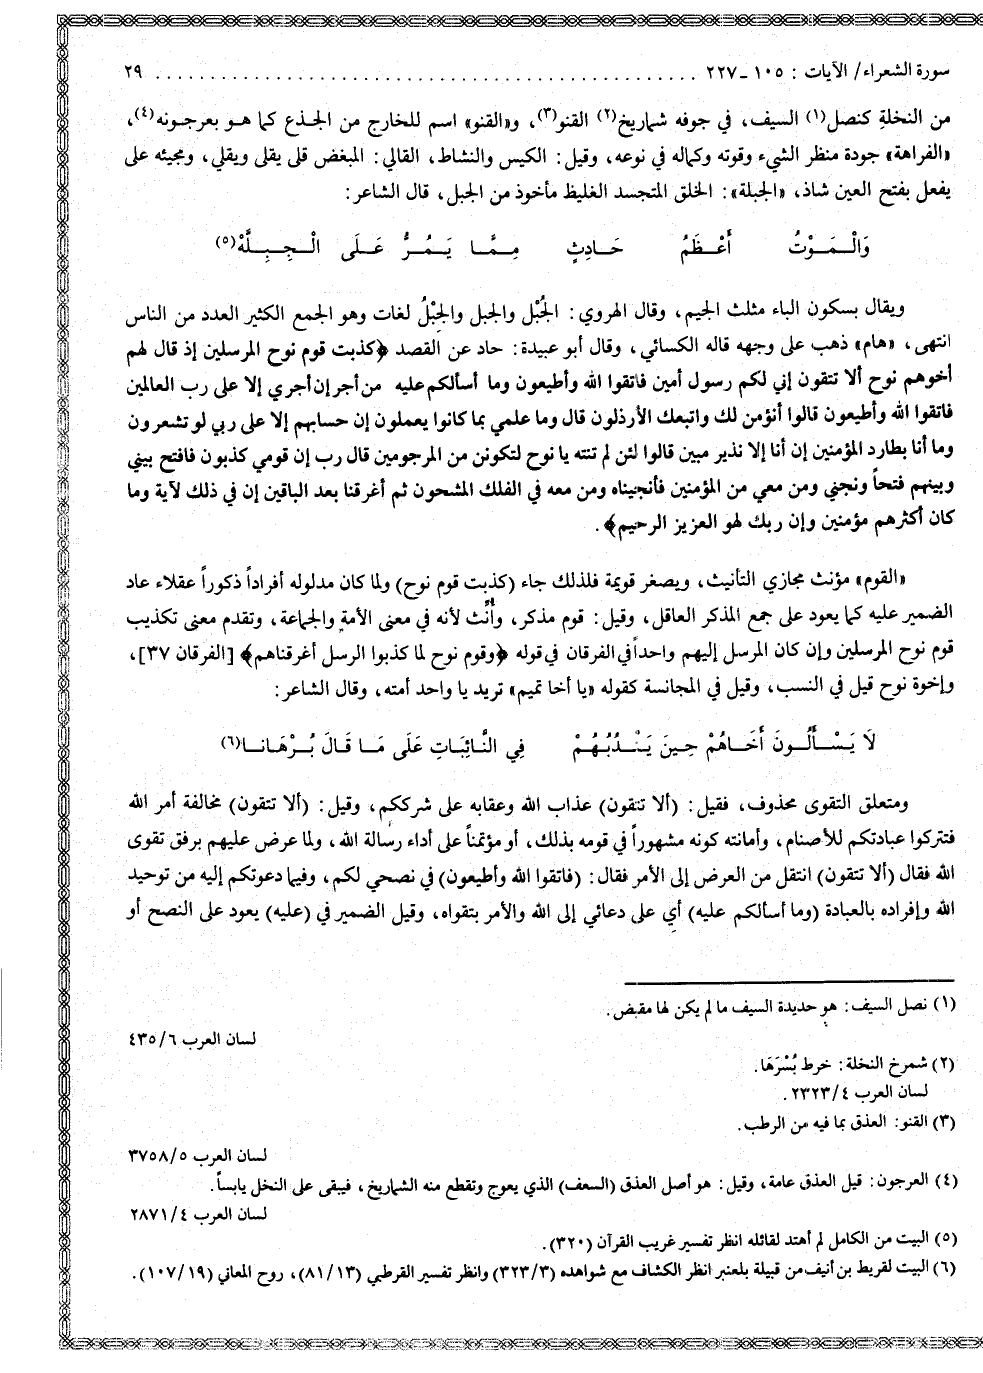 سورة الشعراء/ الآيات : ١٠٥ ـ ٢٢٧ ................................................ ٢٩
من النخلةِ كنصل(١) السيف، في جوفه شماريخ(٢) القنو(٣)، و«القنو» اسم للخارج من الجذع كما هو بعرجونه(٤)،
«الفراهة» جودة منظر الشيء وقوته وكماله في نوعه، وقيل: الكيس والنشاط، القالي: المبغض قلى يقلى ويقلي، ومجيئه على
يفعل بفتح العين شاذ، «الجبلة»: الخلق المتجسد الغليظ مأخوذ من الجبل، قال الشاعر:
وَالْمَوْتُ أَعْظَمُ حَادِثٍ مِمَّا يَمُرُّ عَلَى الْجِبِلَّهْ(٥)
ويقال بسكون الباء مثلث الجيم، وقال الهروي: الجُبْل والجبل والجِبْلُ لغات وهو الجمع الكثير العدد من الناس
انتهى، «هام» ذهب على وجهه قاله الكسائي، وقال أبو عبيدة: حاد عن القصد ﴿كذبت قوم نوح المرسلين إذ قال لهم
أخوهم نوح ألا تتقون إني لكم رسول أمين فاتقوا الله وأطيعون وما أسألكم عليه من أجر إن أجري إلا على رب العالمين
فاتقوا الله وأطيعون قالوا أنؤمن لك واتبعك الأرذلون قال وما علمي بما كانوا يعملون إن حسابهم إلا على ربي لو تشعرون
وما أنا بطارد المؤمنين إن أنا إلا نذير مبين قالوا لئن لم تنته يا نوح لتكونن من المرجومين قال رب إن قومي كذبون فافتح بيني
وبينهم فتحاً ونجني ومن معي من المؤمنين فأنجيناه ومن معه في الفلك المشحون ثم أغرقنا بعد الباقين إن في ذلك لآية وما
كان أكثرهم مؤمنين وإن ربك لهو العزيز الرحيم﴾.
«القوم» مؤنث مجازي التأنيث، ويصغر قويمة فلذلك جاء (كذبت قوم نوح) ولما كان مدلوله أفراداً ذكوراً عقلاء عاد
الضمير عليه كما يعود على جمع المذكر العاقل، وقيل: قوم مذكر، وأُنِّث لأنه في معنى الأمة والجماعة، وتقدم معنى تكذيب
قوم نوح المرسلين وإن كان المرسل إليهم واحداً في الفرقان في قوله ﴿وقوم نوح لما كذبوا الرسل أغرقناهم﴾ [الفرقان ٣٧]،
وإخوة نوح قيل في النسب، وقيل في المجانسة كقوله «يا أخا تميم» تريد يا واحد أمته، وقال الشاعر:
لَا يَسْأَلُونَ أَخَاهُمْ حِينَ يَنْدُبُهُمْ فِي النَّائِبَاتِ عَلَى مَا قَالَ بُرْهَانا(٦)
ومتعلق التقوى محذوف، فقيل: (ألا تتقون) عذاب الله وعقابه على شرككم، وقيل: (ألا تتقون) مخالفة أمر الله
فتتركوا عبادتكم للأصنام، وأمانته كونه مشهوراً في قومه بذلك، أو مؤتمناً على أداء رسالة الله، ولما عرض عليهم برفق تقوى
الله فقال (ألا تتقون) انتقل من العرض إلى الأمر فقال: (فاتقوا الله وأطيعون) في نصحي لكم، وفيما دعوتكم إليه من توحيد
الله وإفراده بالعبادة (وما أسألكم عليه) أي على دعائي إلى الله والأمر بتقواه، وقيل الضمير في (عليه) يعود على النصح أو
(١) نصل السيف: هو حديدة السيف ما لم يكن لها مقبض.
لسان العرب ٤٣٥/٦
(٢) شمرخ النخلة: خرط بُسْرَهَا.
لسان العرب ٢٣٢٣/٤.
(٣) القنو: العذق بما فيه من الرطب.
لسان العرب ٣٧٥٨/٥
(٤) العرجون: قيل العذق عامة، وقيل: هو أصل العذق (السعف) الذي يعوج وتقطع منه الشماريخ، فيبقى على النخل يابساً.
لسان العرب ٢٨٧١/٤
(٥) البيت من الكامل لم أهتد لقائله انظر تفسير غريب القرآن (٣٢٠).
(٦) البيت لقريط بن أنيف من قبيلة بلعنبر انظر الكشاف مع شواهده (٣٢٣/٣) وانظر تفسير القرطبي (٨١/١٣)، روح المعاني (١٠٧/١٩).